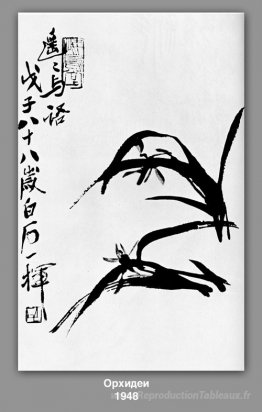 戊子八十八歲白石一揮
Орхидеи
1948
ReproductionTableaux.fr